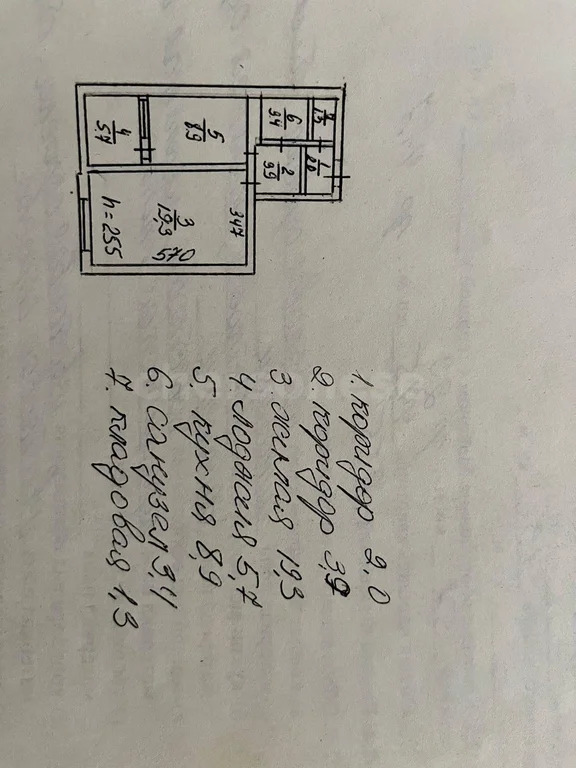 7
1,3
6
3,4
1
2,0
2
3,9
5
8,9
4
5,7
3
19,3
347
570
h=255
1. коридор 2,0
2. коридор 3,9
3. жилая 19,3
4. лоджия 5,7
5. кухня 8,9
6. санузел 3,4
7. кладовая 1,3